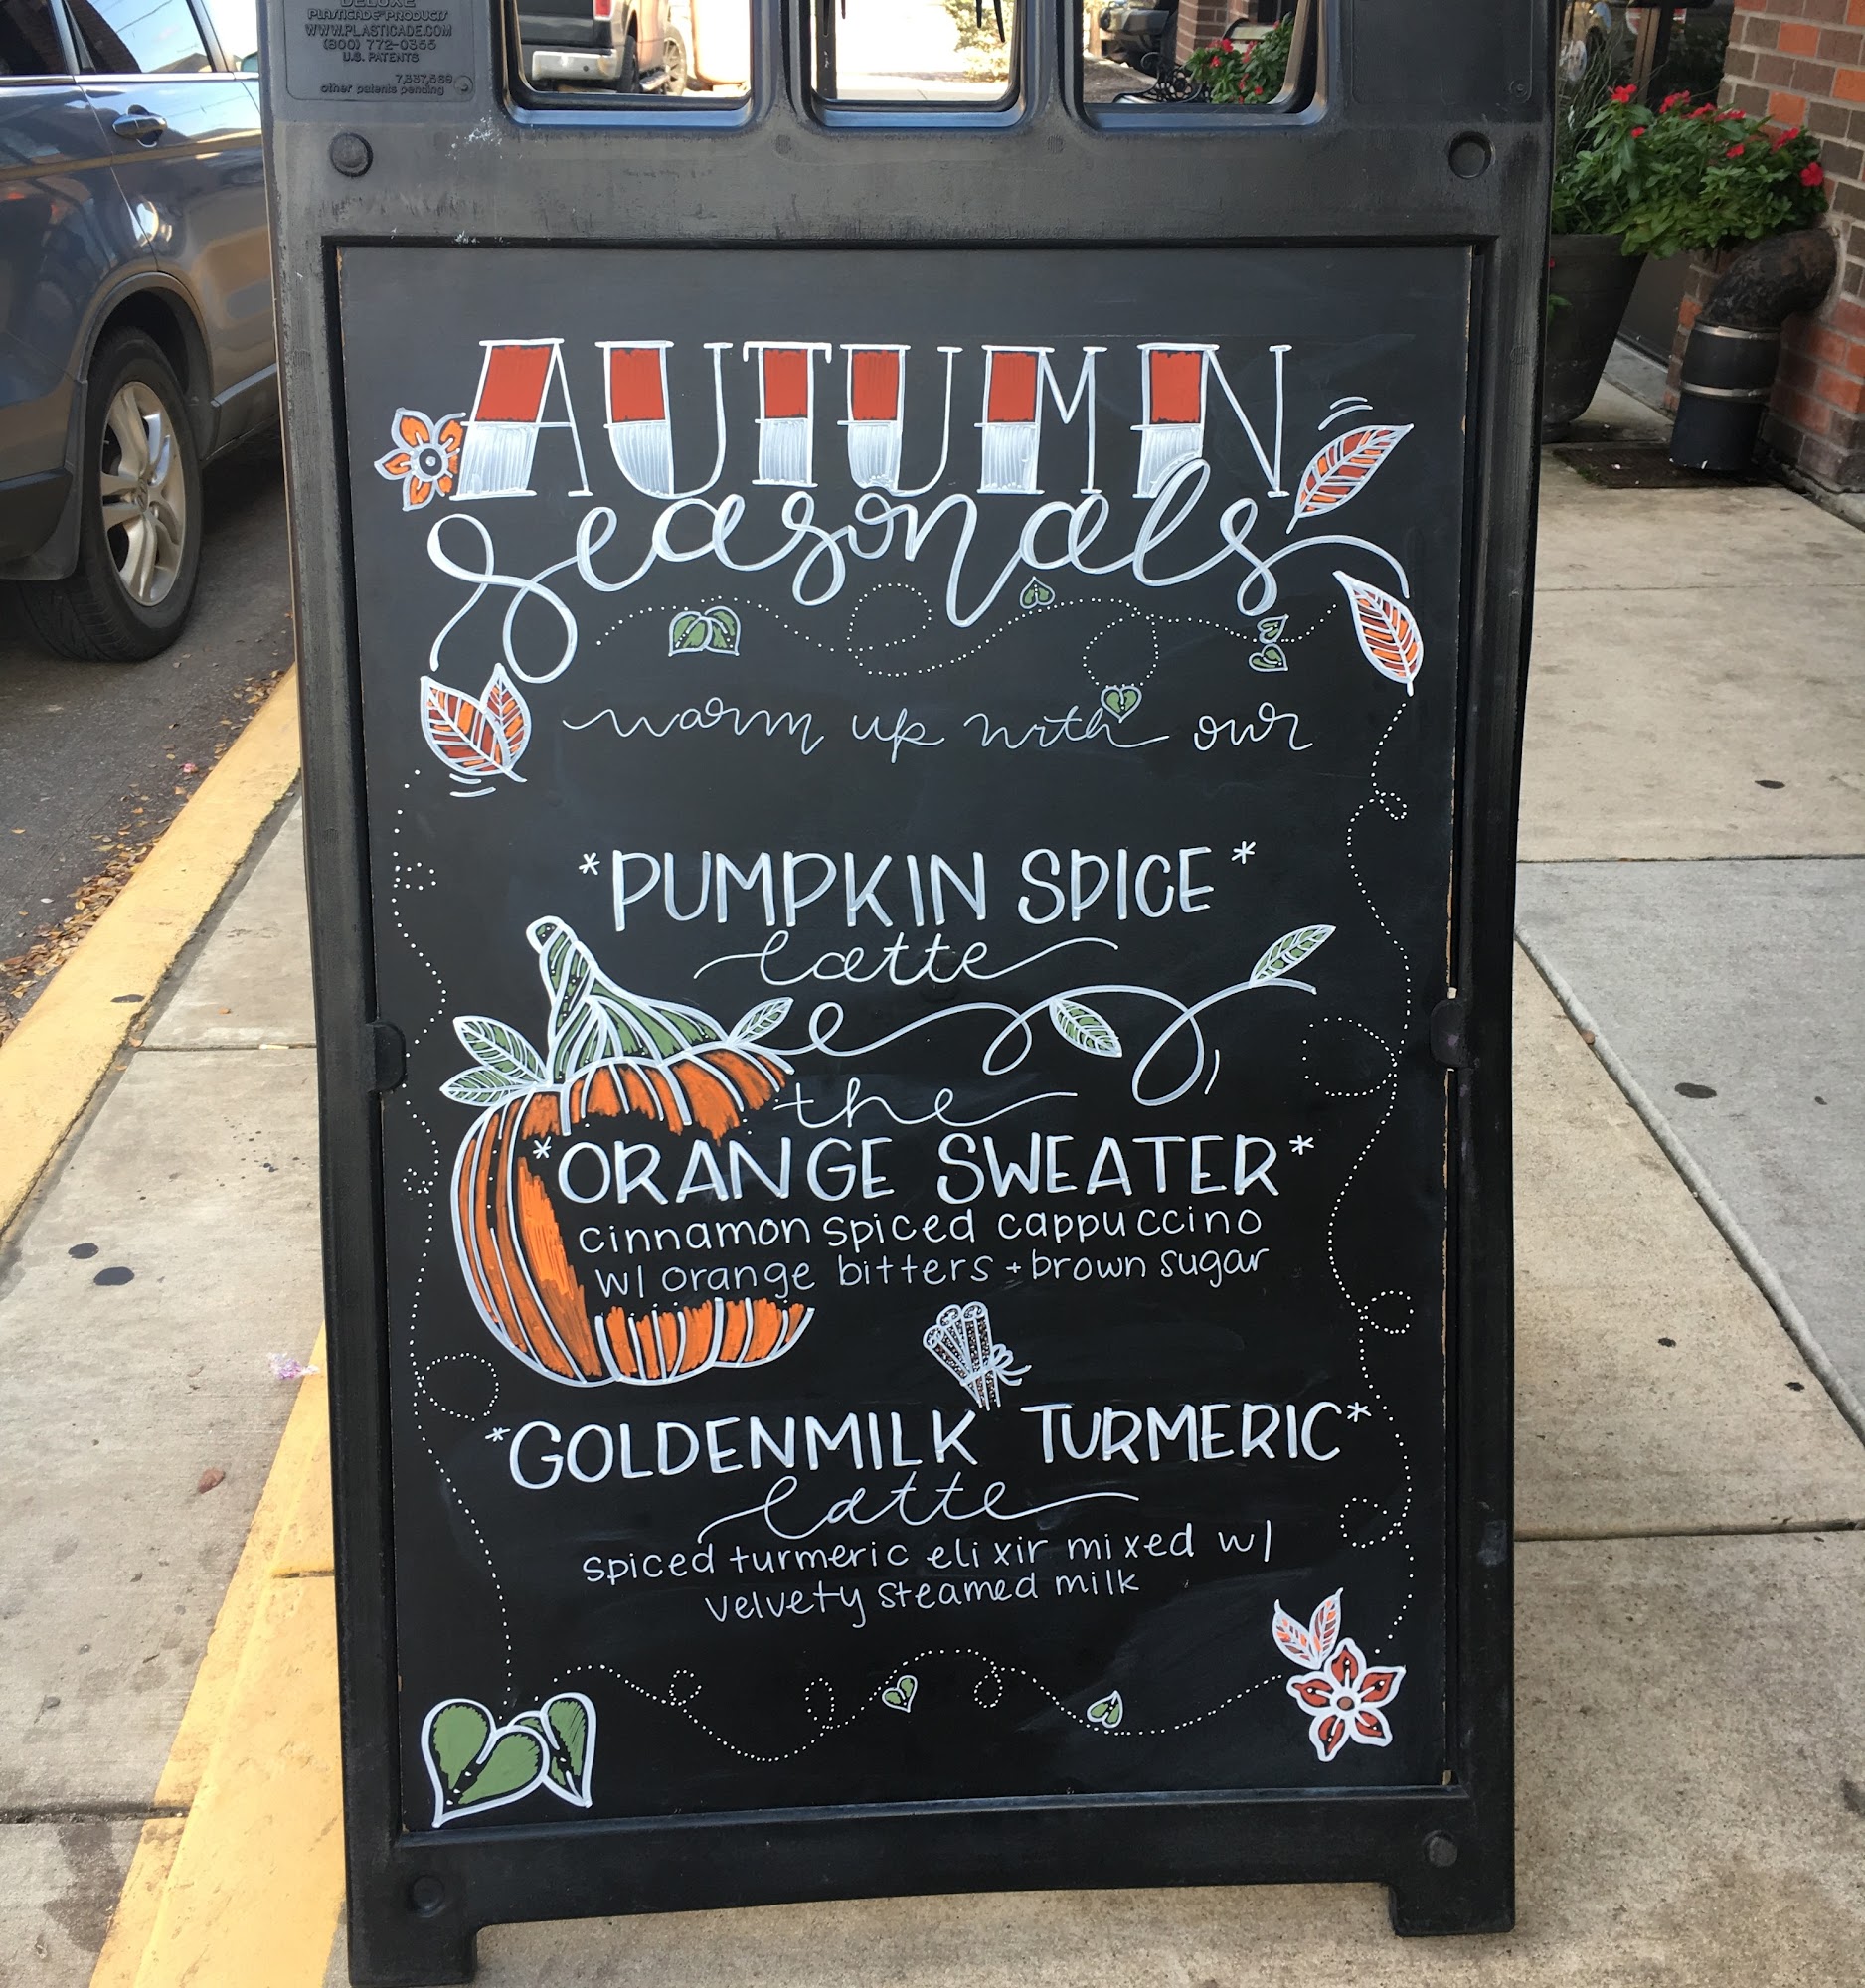 DELUXE
PLASTICADE PRODUCTS
WWW.PLASTICADE.COM
(800) 772-0355
U.S. PATENTS
7,837,569
other patents pending
AUTUMN
seasonals
warm up with our
*PUMPKIN SPICE*
latte
the
*ORANGE SWEATER*
cinnamon spiced cappuccino
w/ orange bitters + brown sugar
*GOLDENMILK TURMERIC*
latte
spiced turmeric elixir mixed w/
velvety steamed milk